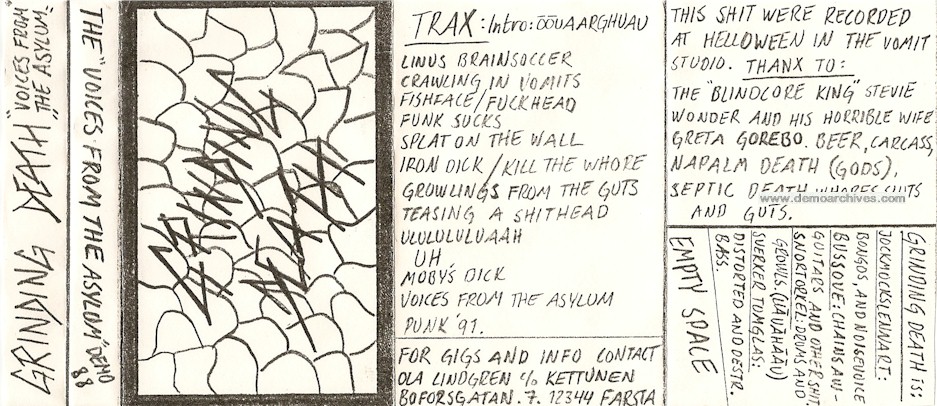 GRINDING DEATH "VOICES FROM
"THE ASYLUM"
THE "VOICES FROM THE ASYLUM" DEMO
88
TRAX: Intro: ÖÖUAARGHUAU
LINUS BRAINSOCCER
CRAWLING IN VOMITS
FISHFACE/FUCKHEAD
FUNK SUCKS
SPLAT ON THE WALL
IRON DICK/KILL THE WHORE
GROWLINGS FROM THE GUTS
TEASING A SHITHEAD
ULULULULUAAH
UH
MOBY'S DICK
VOICES FROM THE ASYLUM
PUNK '91.
FOR GIGS AND INFO CONTACT
OLA LINDGREN c/o KETTUNEN
BOFORSGATAN. 7. 12344 FARSTA
THIS SHIT WERE RECORDED
AT HELLOWEEN IN THE VOMIT
STUDIO. THANX TO:
THE "BLINDCORE KING" STEVIE
WONDER AND HIS HORRIBLE WIFE
GRETA GOREBO. BEER, CARCASS,
NAPALM DEATH (GODS),
SEPTIC DEATH WHORES CUTS
www.demoarchives.com
AND GUTS.
GRINDING DEATH IS:
JOCKMOCKSLENNART:
BONGOS, AND NOISEVOICE
BUSSOVE: CHAINSAW-
GUITARS AND OTHER SHIT.
SNORTORKEL: DRUMS AND
GROWLS. (UAUAHAAU)
SVERKER TOMGLAS:
DISTORTED AND DESTR.
BASS.
EMPTY SPACE